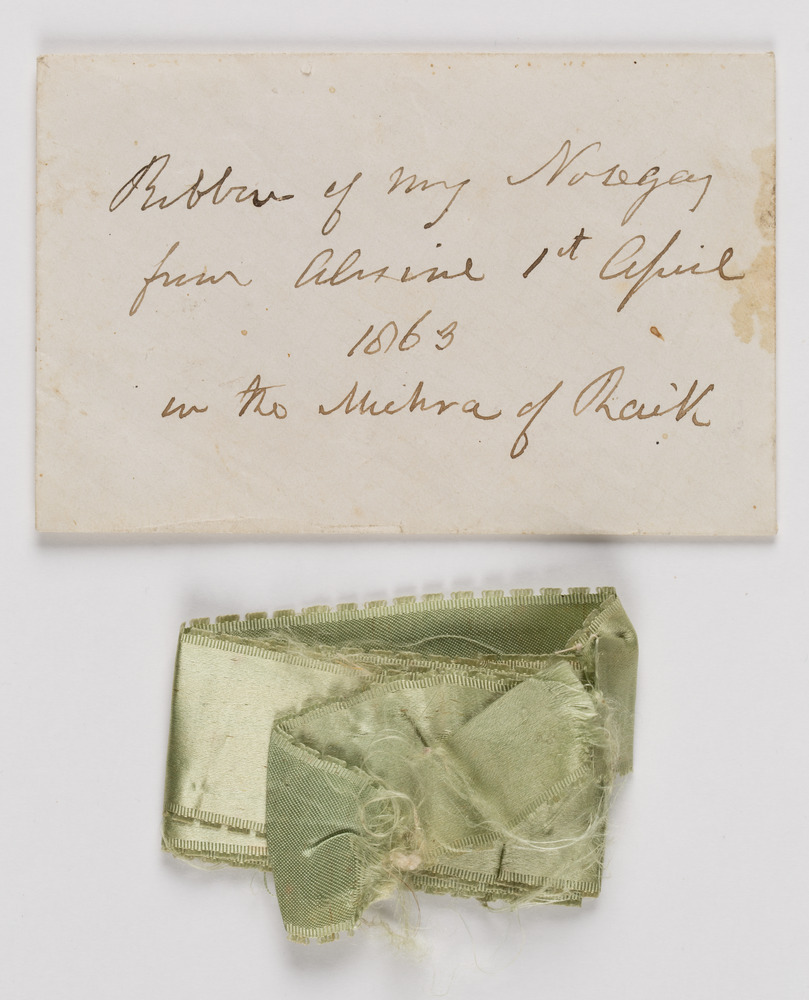 Ribbon of my Nosegay
from Alsine 1st April
1863
in the Michra of Raik